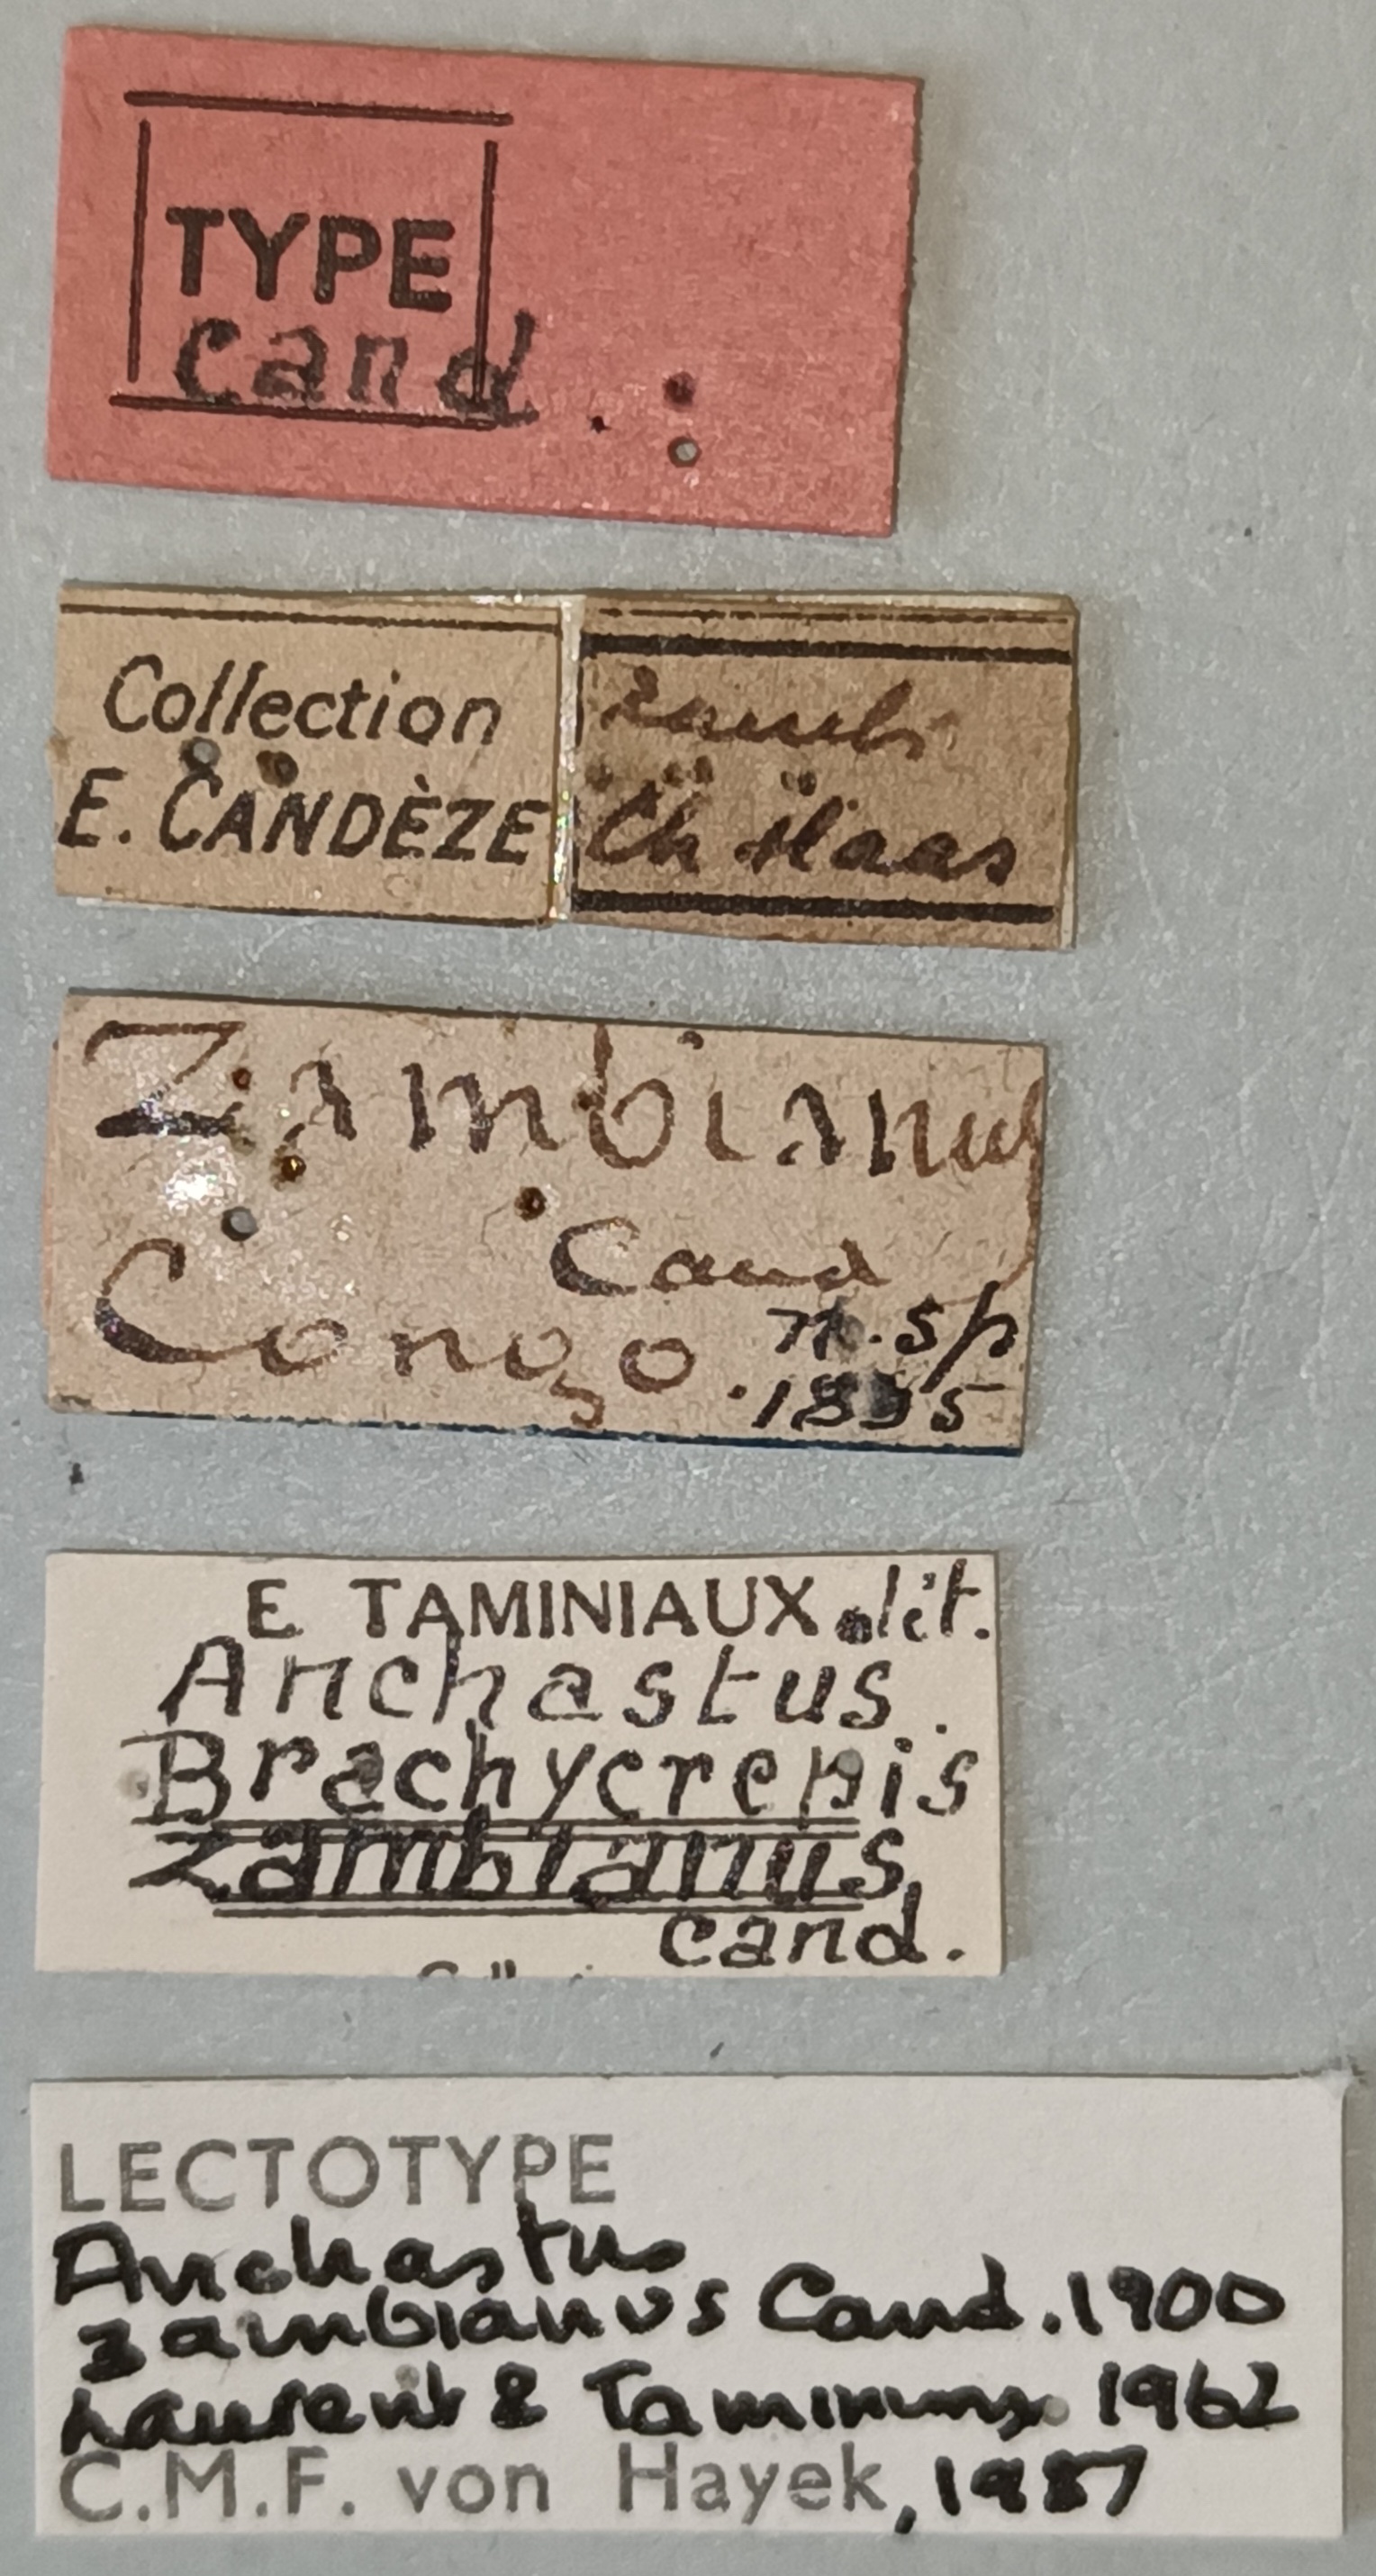 TYPE
cand.
Collection
E. CANDÈZE
Zambi
Ch Haas
Zambianus
Cand
Congo n. sp
.1895
E TAMINIAUX dét.
Anchastus.
Brachycrepis
zambianus,
cand.
LECTOTYPE
Anchastus
zambianus Cand. 1900
Laurent & Taminiaux 1962
C.M.F. von Hayek, 1987